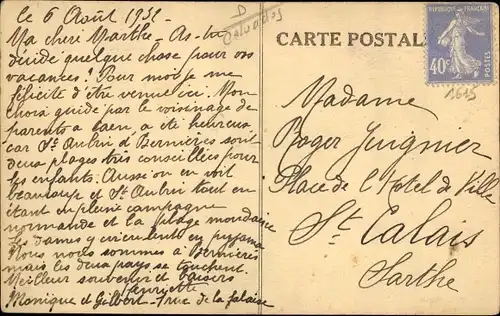 le 6 Août 1932
Ma chère Marthe - As-tu
décidé quelque chose pour vos
vacances? Pour moi je me
félicite d'être venue ici. Mon
choix guidé par le voisinage de
parents à Caen, a été heureux,
car St Aubin et Bernières sont
deux plages très conseillées pour
les enfants. Aussi on en voit
beaucoup et St Aubin tout en
étant en pleine campagne
normande et la plage mondaine
les dames y viennent en pyjama
Nous nous sommes à Bernières
mais les deux pays se touchent.
Meilleur souvenir et baisers
Henriette
Monique et Gilbert - rue de la falaise
D
Calvados
CARTE POSTALE
REPUBLIQUE FRANCAISE
40c
POSTES
1615
Madame
Roger Juignier
Place de l'Hotel de Ville
St Calais
Sarthe